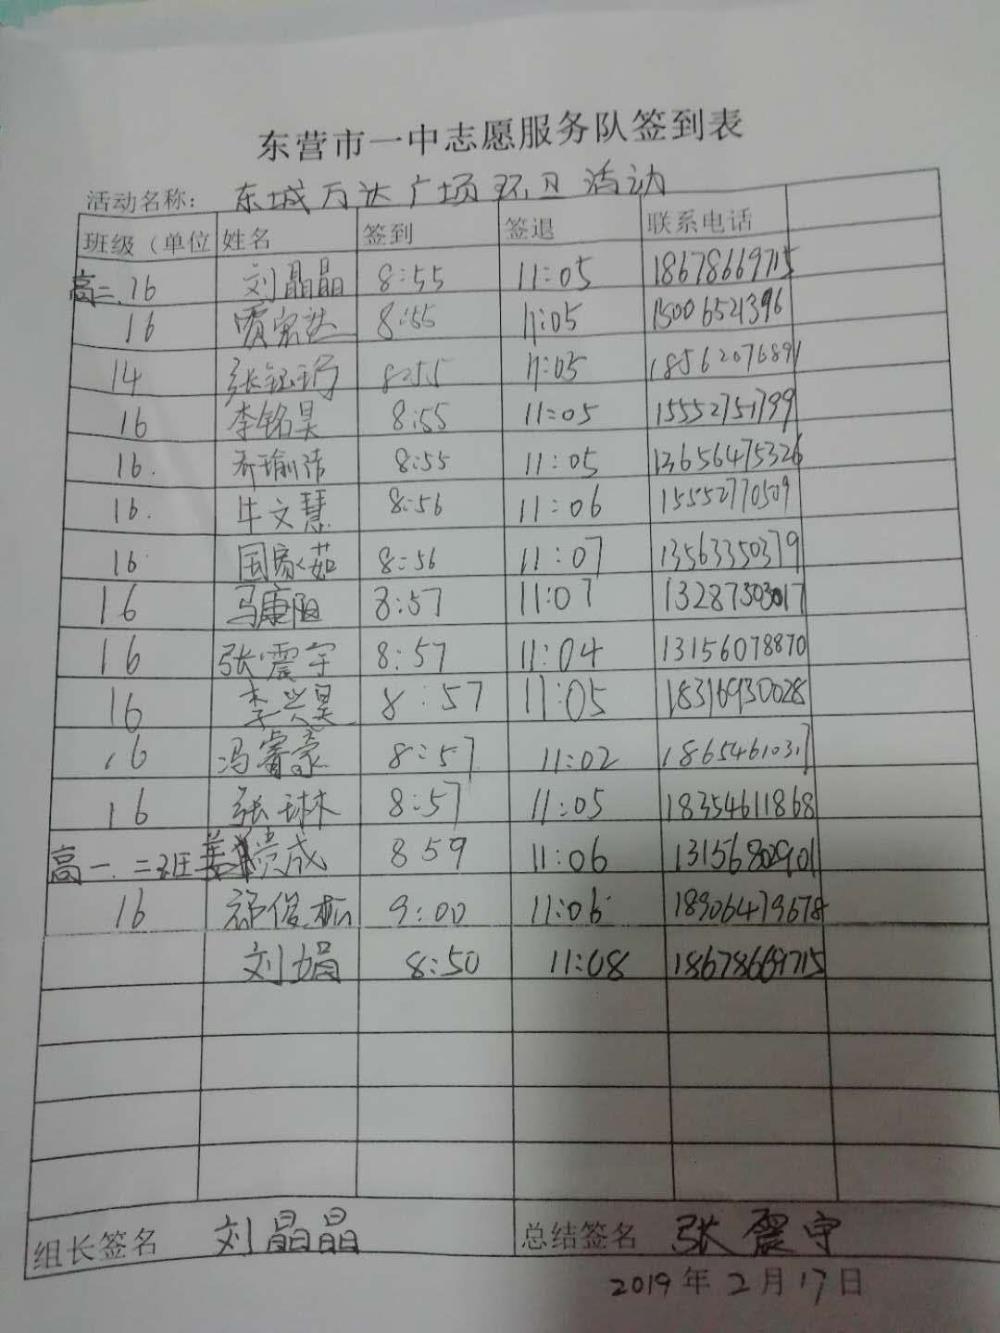 东营市一中志愿服务队签到表
活动名称： 东城万达广场环卫活动
班级（单位 姓名 签到 签退 联系电话
高二.16 刘晶晶 8:55 11:05 18678669715
16 贾家达 8:55 11:05 15006521396
14 张钰 8:55 11:05 18562076891
16 李铭昊 8:55 11:05 15552751799
16. 乔瑜洁 8:55 11:05 13656475326
16. 牛文慧 8:56 11:06 15552770509
16. 国家茹 8:56 11:07 13563350379
16 马康阳 8:57 11:07 13287303017
16 张震宇 8:57 11:04 13156078870
16 李兴昊 8:57 11:05 18316930028
16 冯睿豪 8:57 11:02 18654610317
16 张琳 8:57 11:05 18354611868
高一.二班 姜成 859 11:06 13156802901
16 俊 9:00 11:06 18906479678
刘娟 8:50 11:08 18678669715
组长签名 刘晶晶 总结签名 张震宇
2019年2月17日